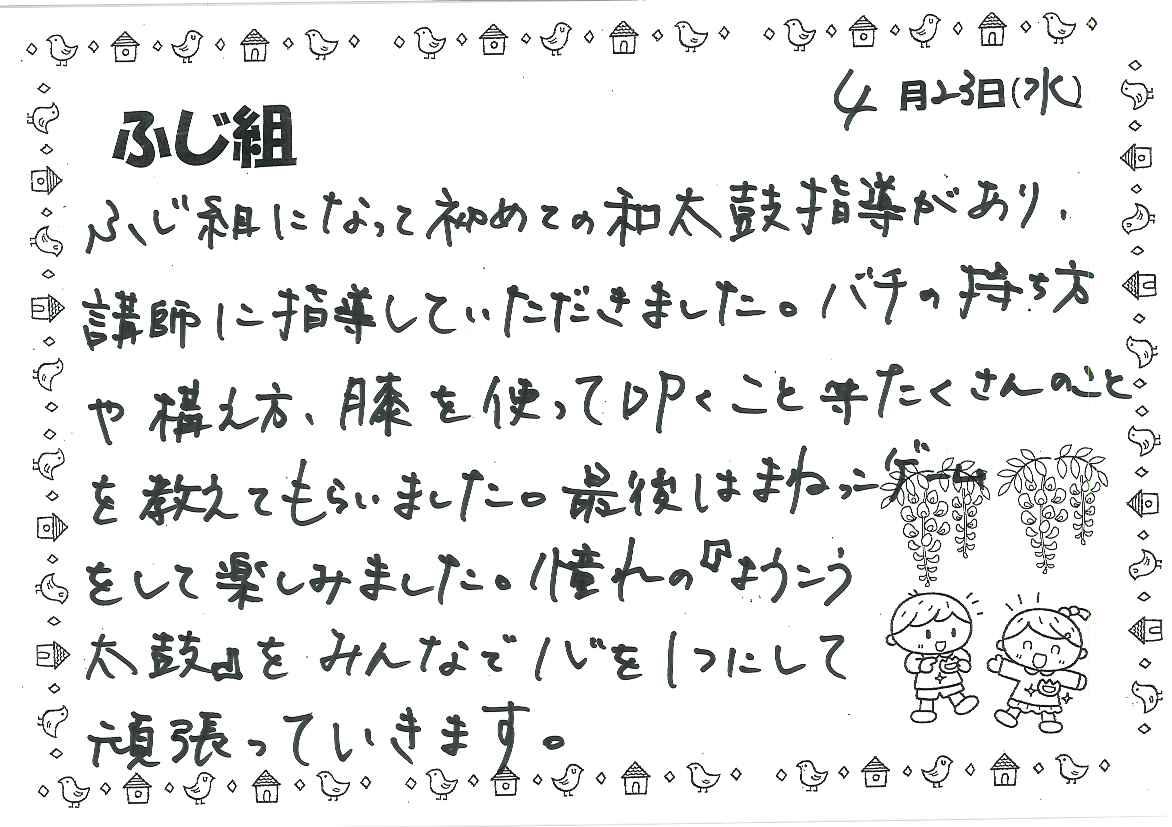 4月23日(水)
ふじ組
ふじ組になって初めての和太鼓指導があり、
講師に指導していただきました。バチの持ち方
や構え方、膝を使って叩くこと等たくさんのこと
を教えてもらいました。最後はまねっこゲーム
をして楽しみました。憧れの『ようこう
太鼓』をみんなで心を1つにして
頑張っていきます。